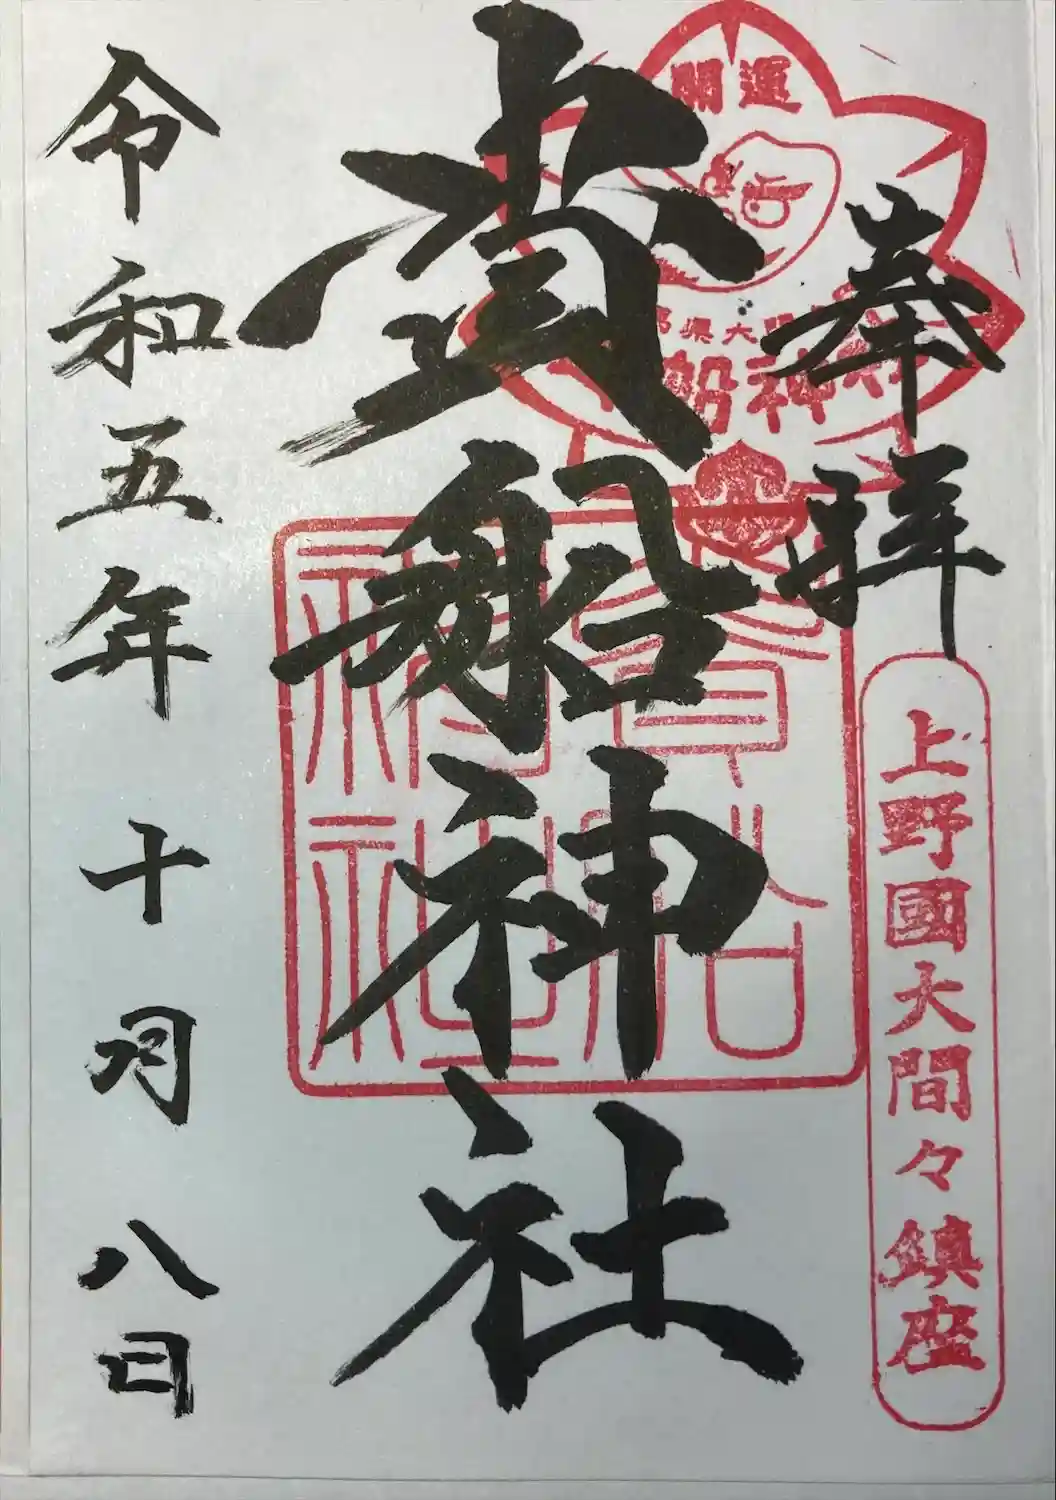 奉拝
開運
県大間
船神社
上野國大間々鎮座
貴船神社
令和五年十月八日